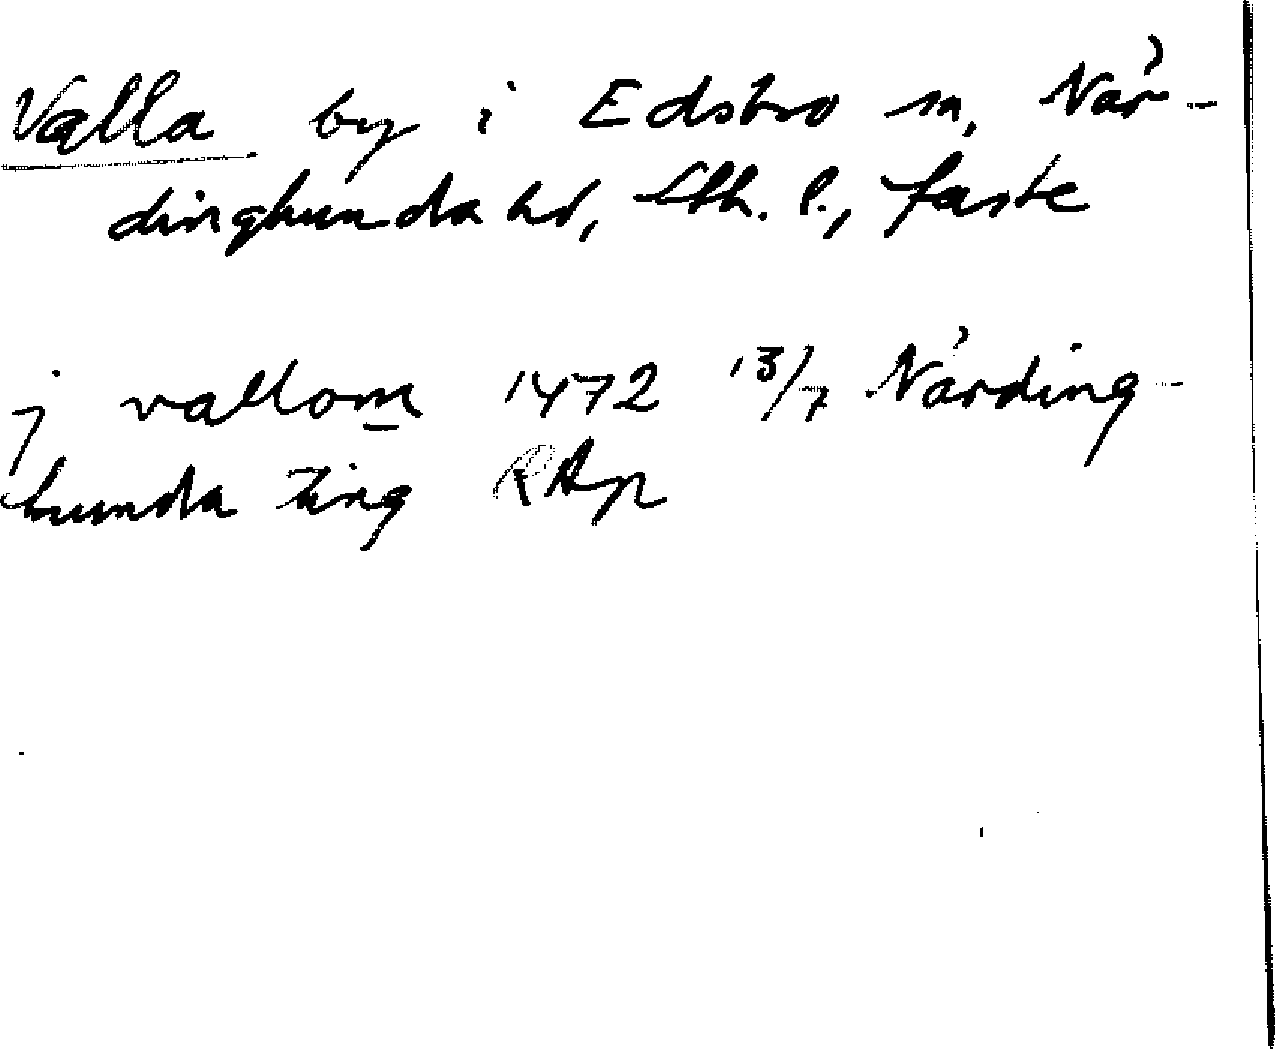 Valla by i Edsbro sn, När-
dinghundahd, Sth. l., faste
j vallom 1472 13/7 Närding-
hunda ting RAp